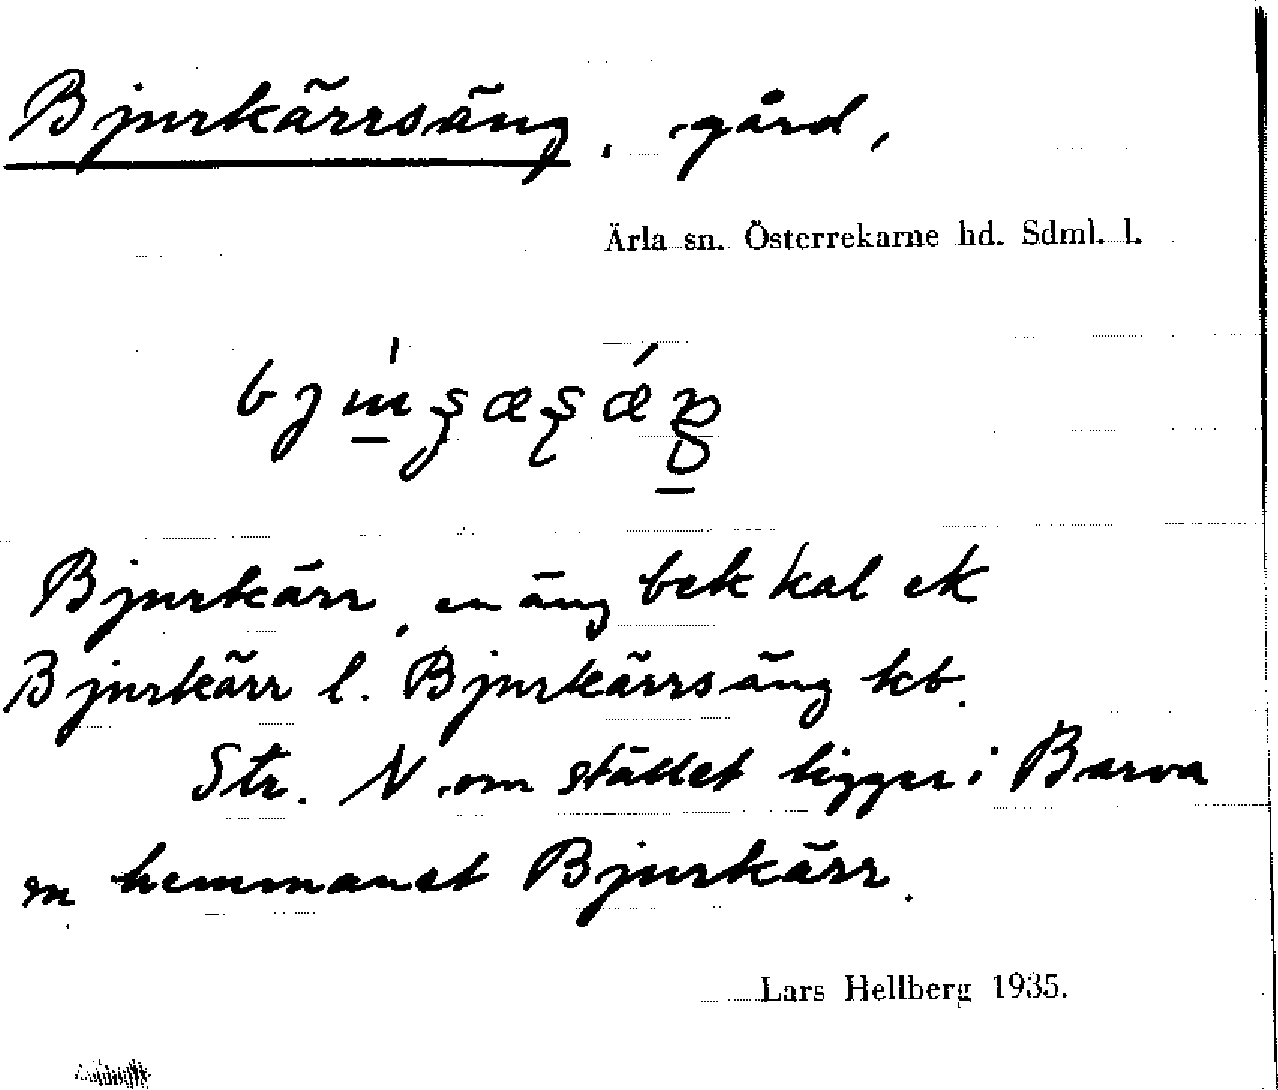 Bjurkärrsäng, gård,
Ärla sn. Österrekarne hd. Sdml. l.
Bjurkärr, en äng bek kal ek
Bjurkärr l. Bjurkärrsäng kb.
Str. N om stället ligger i Barva
sn hemmanet Bjurkärr.
Lars Hellberg 1935.